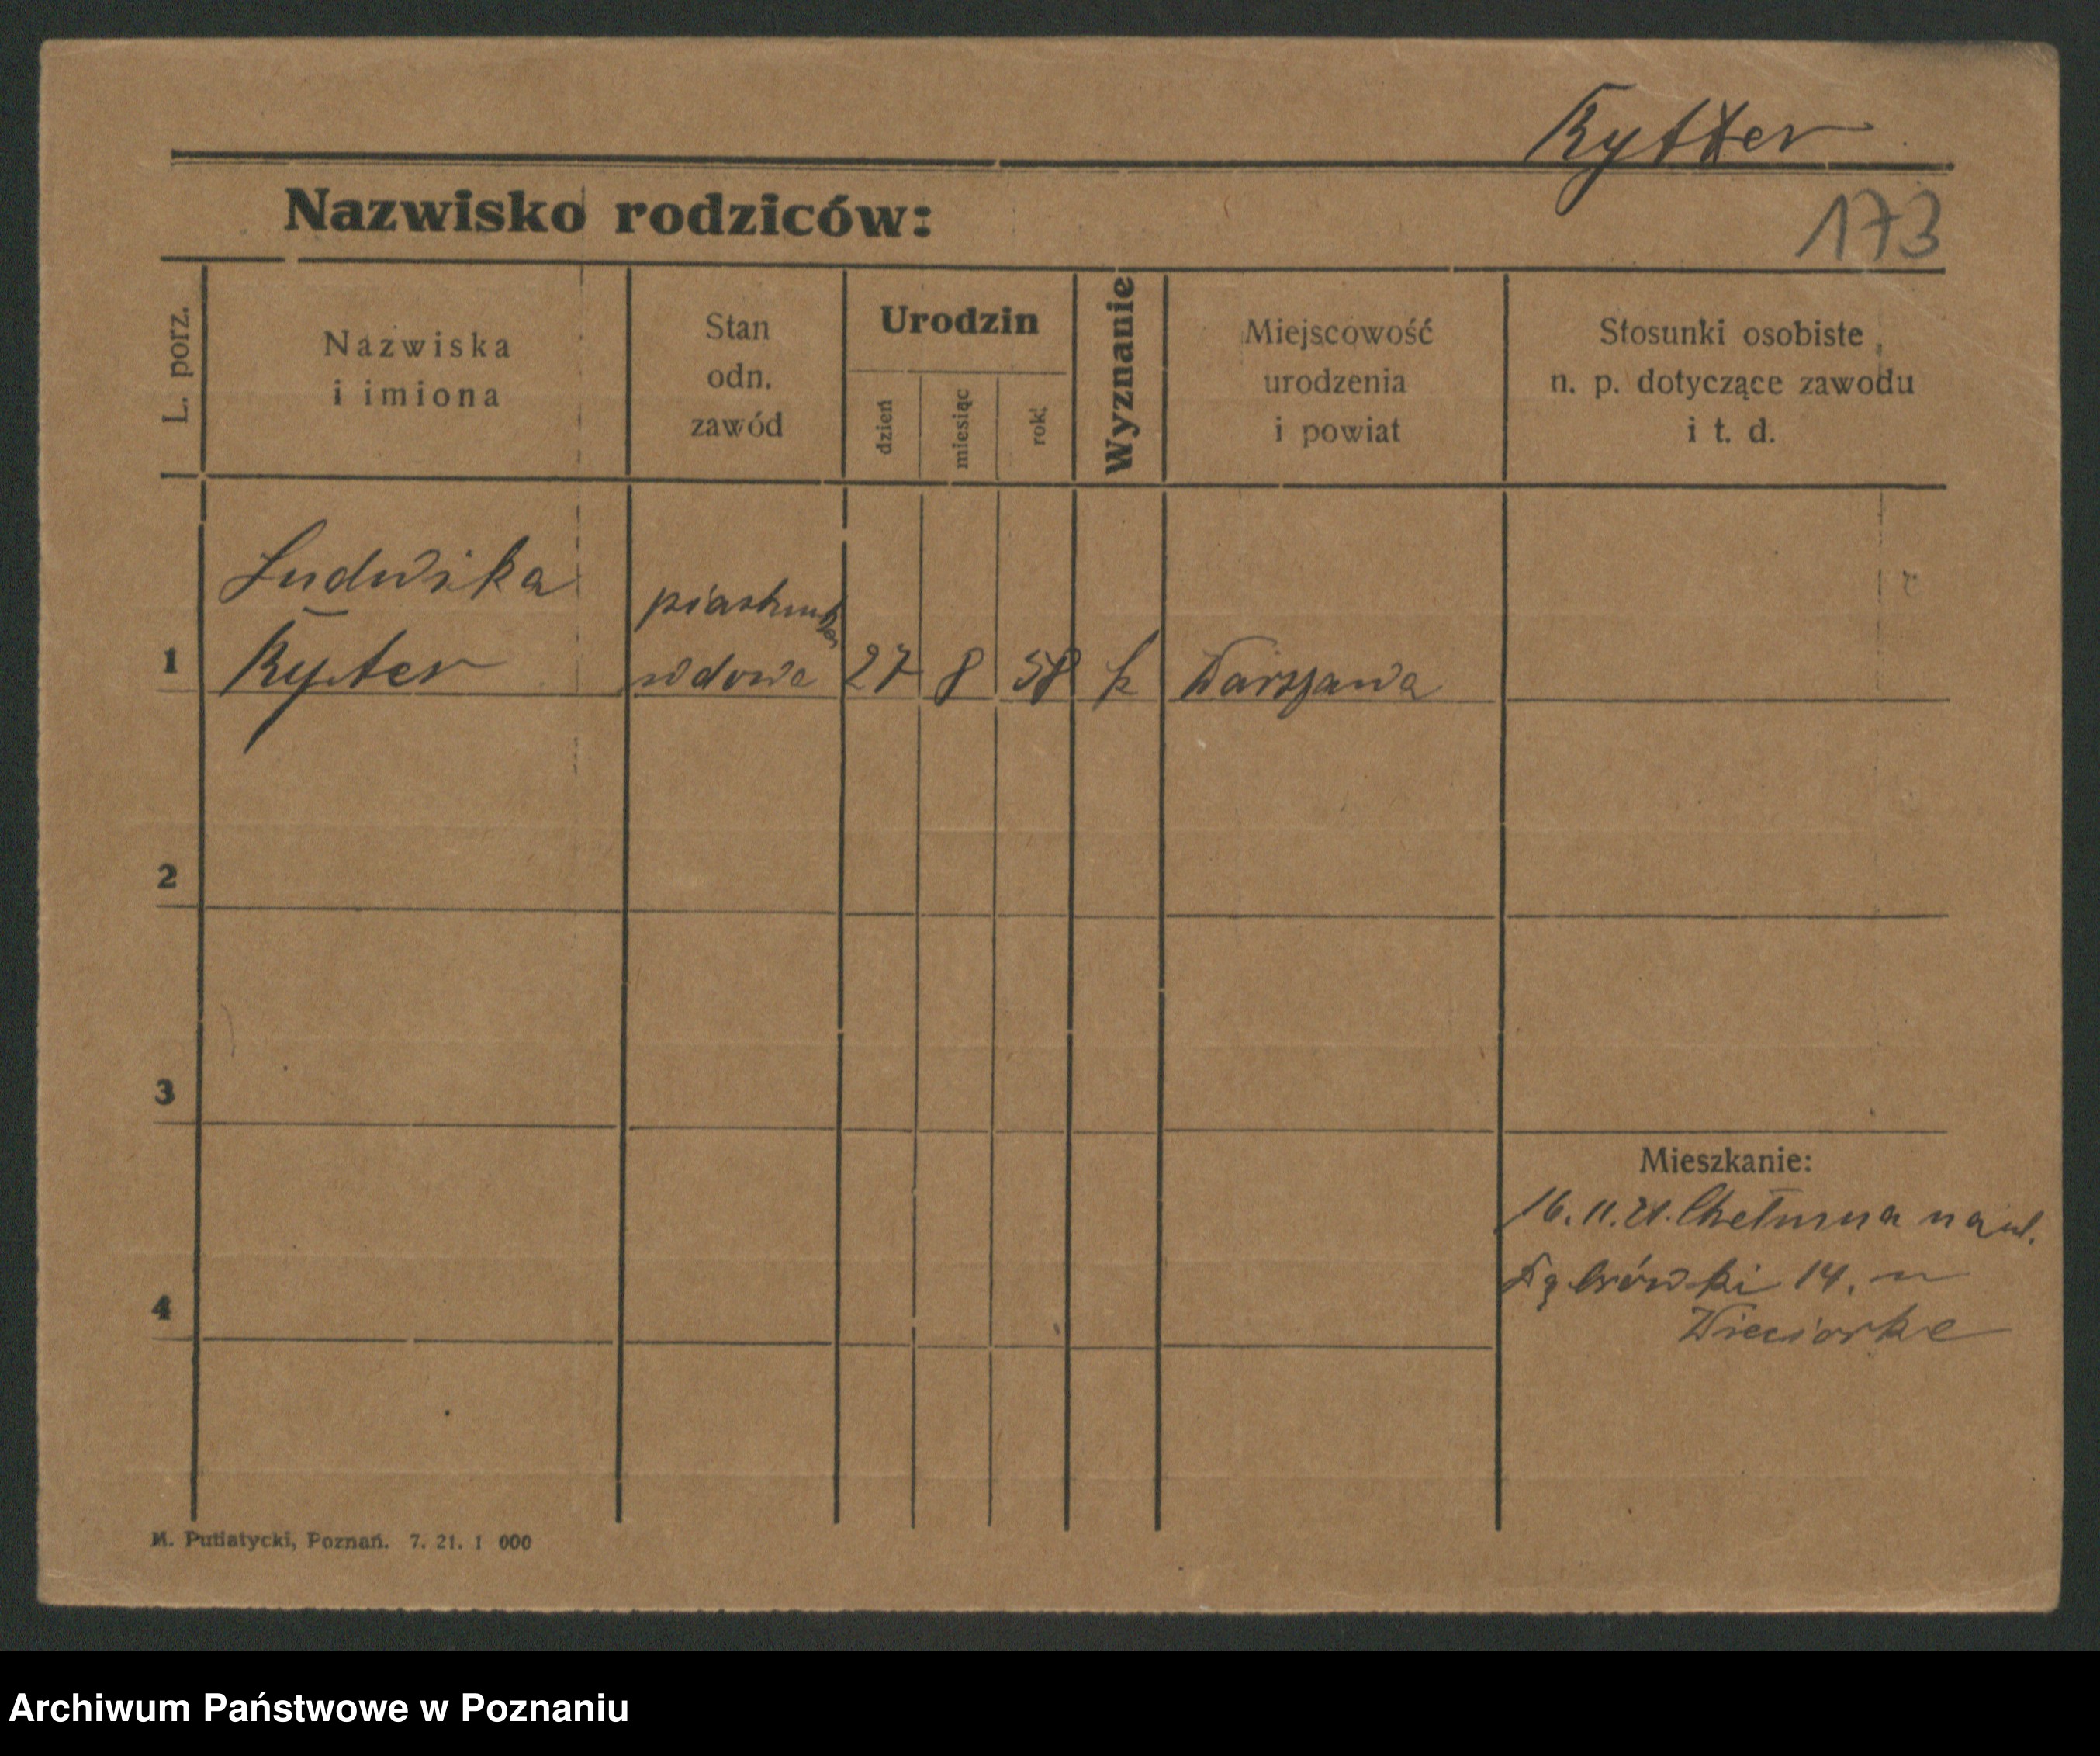 Rytter
Nazwisko rodziców:
173
L. porz.
Nazwiska
i imiona
Stan
odn.
zawód
Urodzin
dzień
miesiąc
rok
Wyznanie
Miejscowość
urodzenia
i powiat
Stosunki osobiste
n. p. dotyczące zawodu
i t. d.
Ludwika
piastunka
1 Ryter wdowa 27 8 58 k Warszawa
2
3
Mieszkanie:
16. 11. 21. Chełmna na ul.
Dąbrówki 14. u
4
Wieciorke
M. Putiatycki, Poznań. 7. 21. 1 000
Archiwum Państwowe w Poznaniu